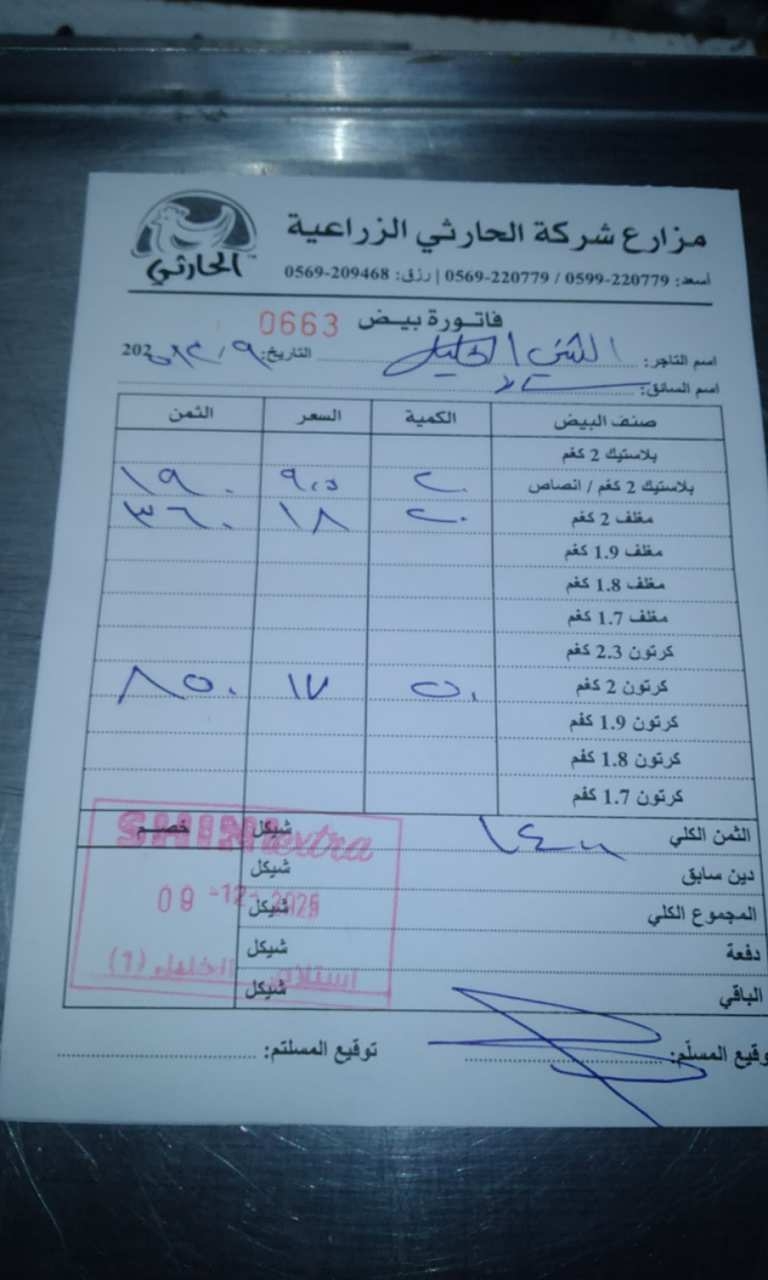 الحارثي
مزارع شركة الحارثي الزراعية
أسعد: 0599-220779 / 0569-220779 | رزق: 0569-209468
فاتورة بيض 0663
اسم التاجر: الشني الخليل التاريخ: ٩/١٢/2025
اسم السائق:
صنف البيض الكمية السعر الثمن
بلاستيك 2 كغم
بلاستيك 2 كغم / انصاص ٢٠ ٩,٥ ١٩٠
مغلف 2 كغم ٢٠ ١٨ ٣٦٠
مغلف 1.9 كغم
مغلف 1.8 كغم
مغلف 1.7 كغم
كرتون 2.3 كغم
كرتون 2 كغم ٥٠ ١٧ ٨٥٠
كرتون 1.9 كغم
كرتون 1.8 كغم
كرتون 1.7 كغم
الثمن الكلي ١٤٠٠ شيكل خصم
دين سابق شيكل
المجموع الكلي شيكل
دفعة شيكل
الباقي شيكل
SHINI extra
09 -12- 2025
استلام الخليل (٦)
توقيع المسلّم: توقيع المستلم: